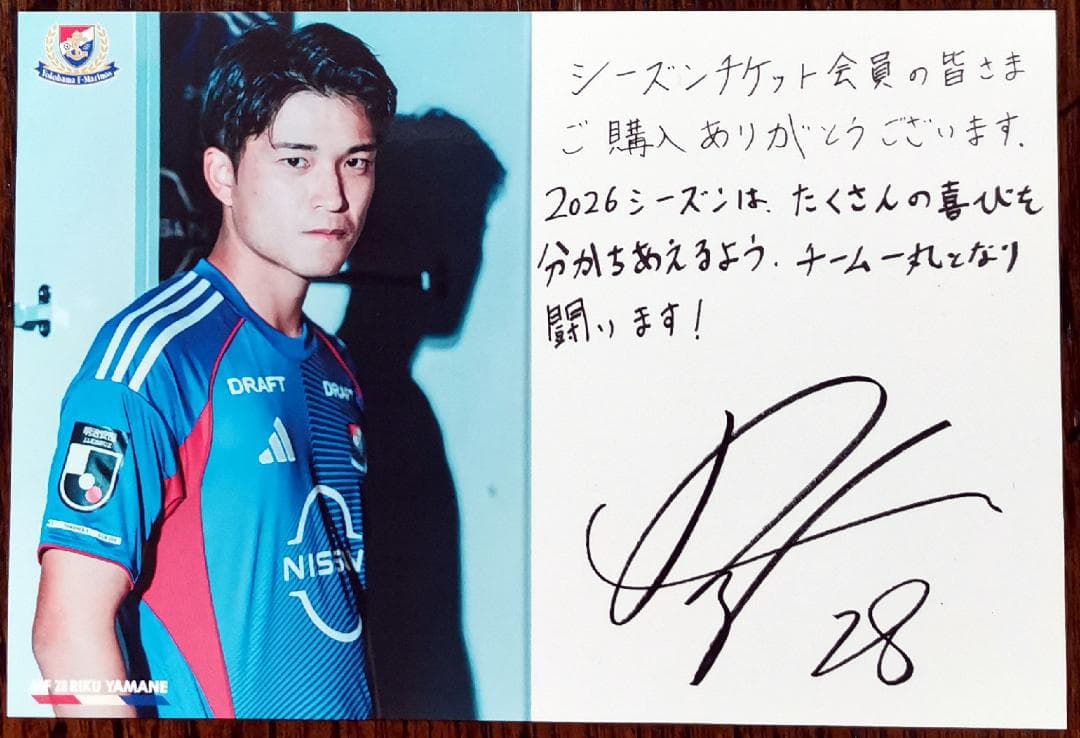 Yokohama F·Marinos
DRAFT
DRAFT
明治安田
J.LEAGUE
NISSAN
MF 28 RIKU YAMANE
シーズンチケット会員の皆さま
ご購入ありがとうございます.
2026シーズンは、たくさんの喜びを
分かちあえるよう、チーム一丸となり
闘います!
28